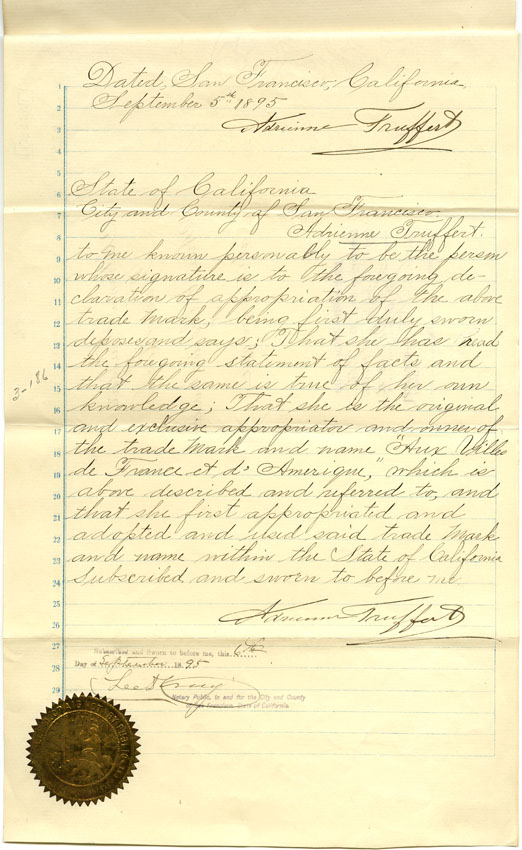 Dated, San Francisco, California,
September 5th 1895
Adrienne Truffert
State of California
City and County of San Francisco.
Adrienne Truffert.
to me known personably to be the person
whose signature is to the foregoing de-
claration of appropriation of the above
trade mark, being first duly sworn
deposes and says; That she has read
the foregoing statement of facts and
that the same is true of her own
knowledge; That she is the original
and exclusive appropriator and owner of
the trade mark and name "Aux Villes
de France et d' Amerique," which is
above described and referred to, and
that she first appropriated and
adopted and used said trade Mark
and name within the State of California
Subscribed and sworn to before me
Adrienne Truffert
Subscribed and Sworn to before me, this 6th
Day of September 1895
Notary Public, in and for the City and County
of San Francisco, State of California.
1
2
3
4
5
6
7
8
9
10
11
12
13
14
15
16
17
18
19
20
21
22
23
24
25
26
27
28
29